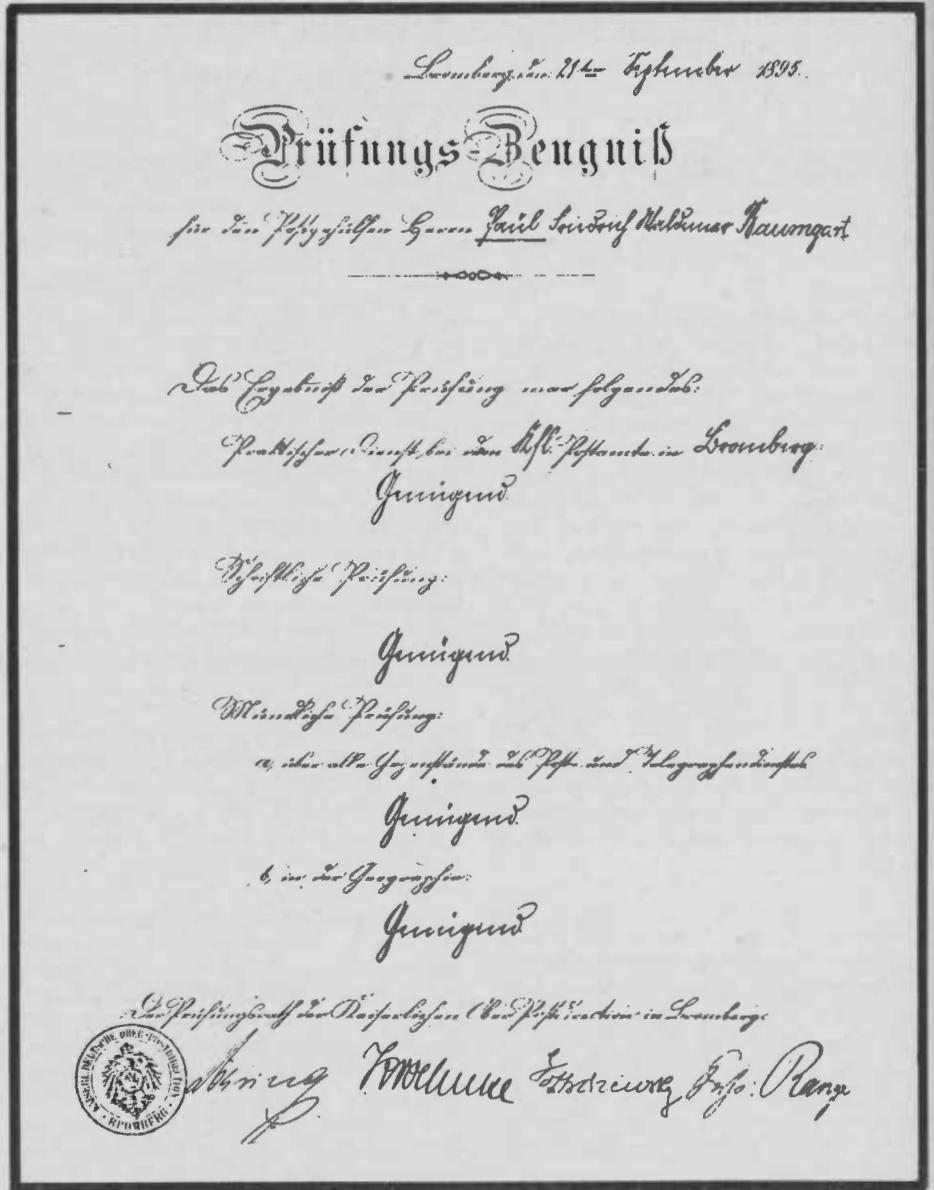 Bromberg, den 21ten September 1895.
Prüfungs-Zeugniß
für den Postgehülfen Herrn Paul Friedrich Waldemar Baumgart
Das Ergebniß der Prüfung war folgendes:
Praktischer Dienst bei dem Ksl. Postamte in Bromberg:
Genügend.
Schriftliche Prüfung:
Genügend.
Mündliche Prüfung:
a, über alle Gegenstände des Post- und Telegraphendienstes
Genügend.
b, in der Geographie:
Genügend.
Der Prüfungsrath der Kaiserlichen Ober-Postdirection in Bromberg.
KAISERL. DEUTSCHE OBER-POSTDIRECTION
BROMBERG
Range